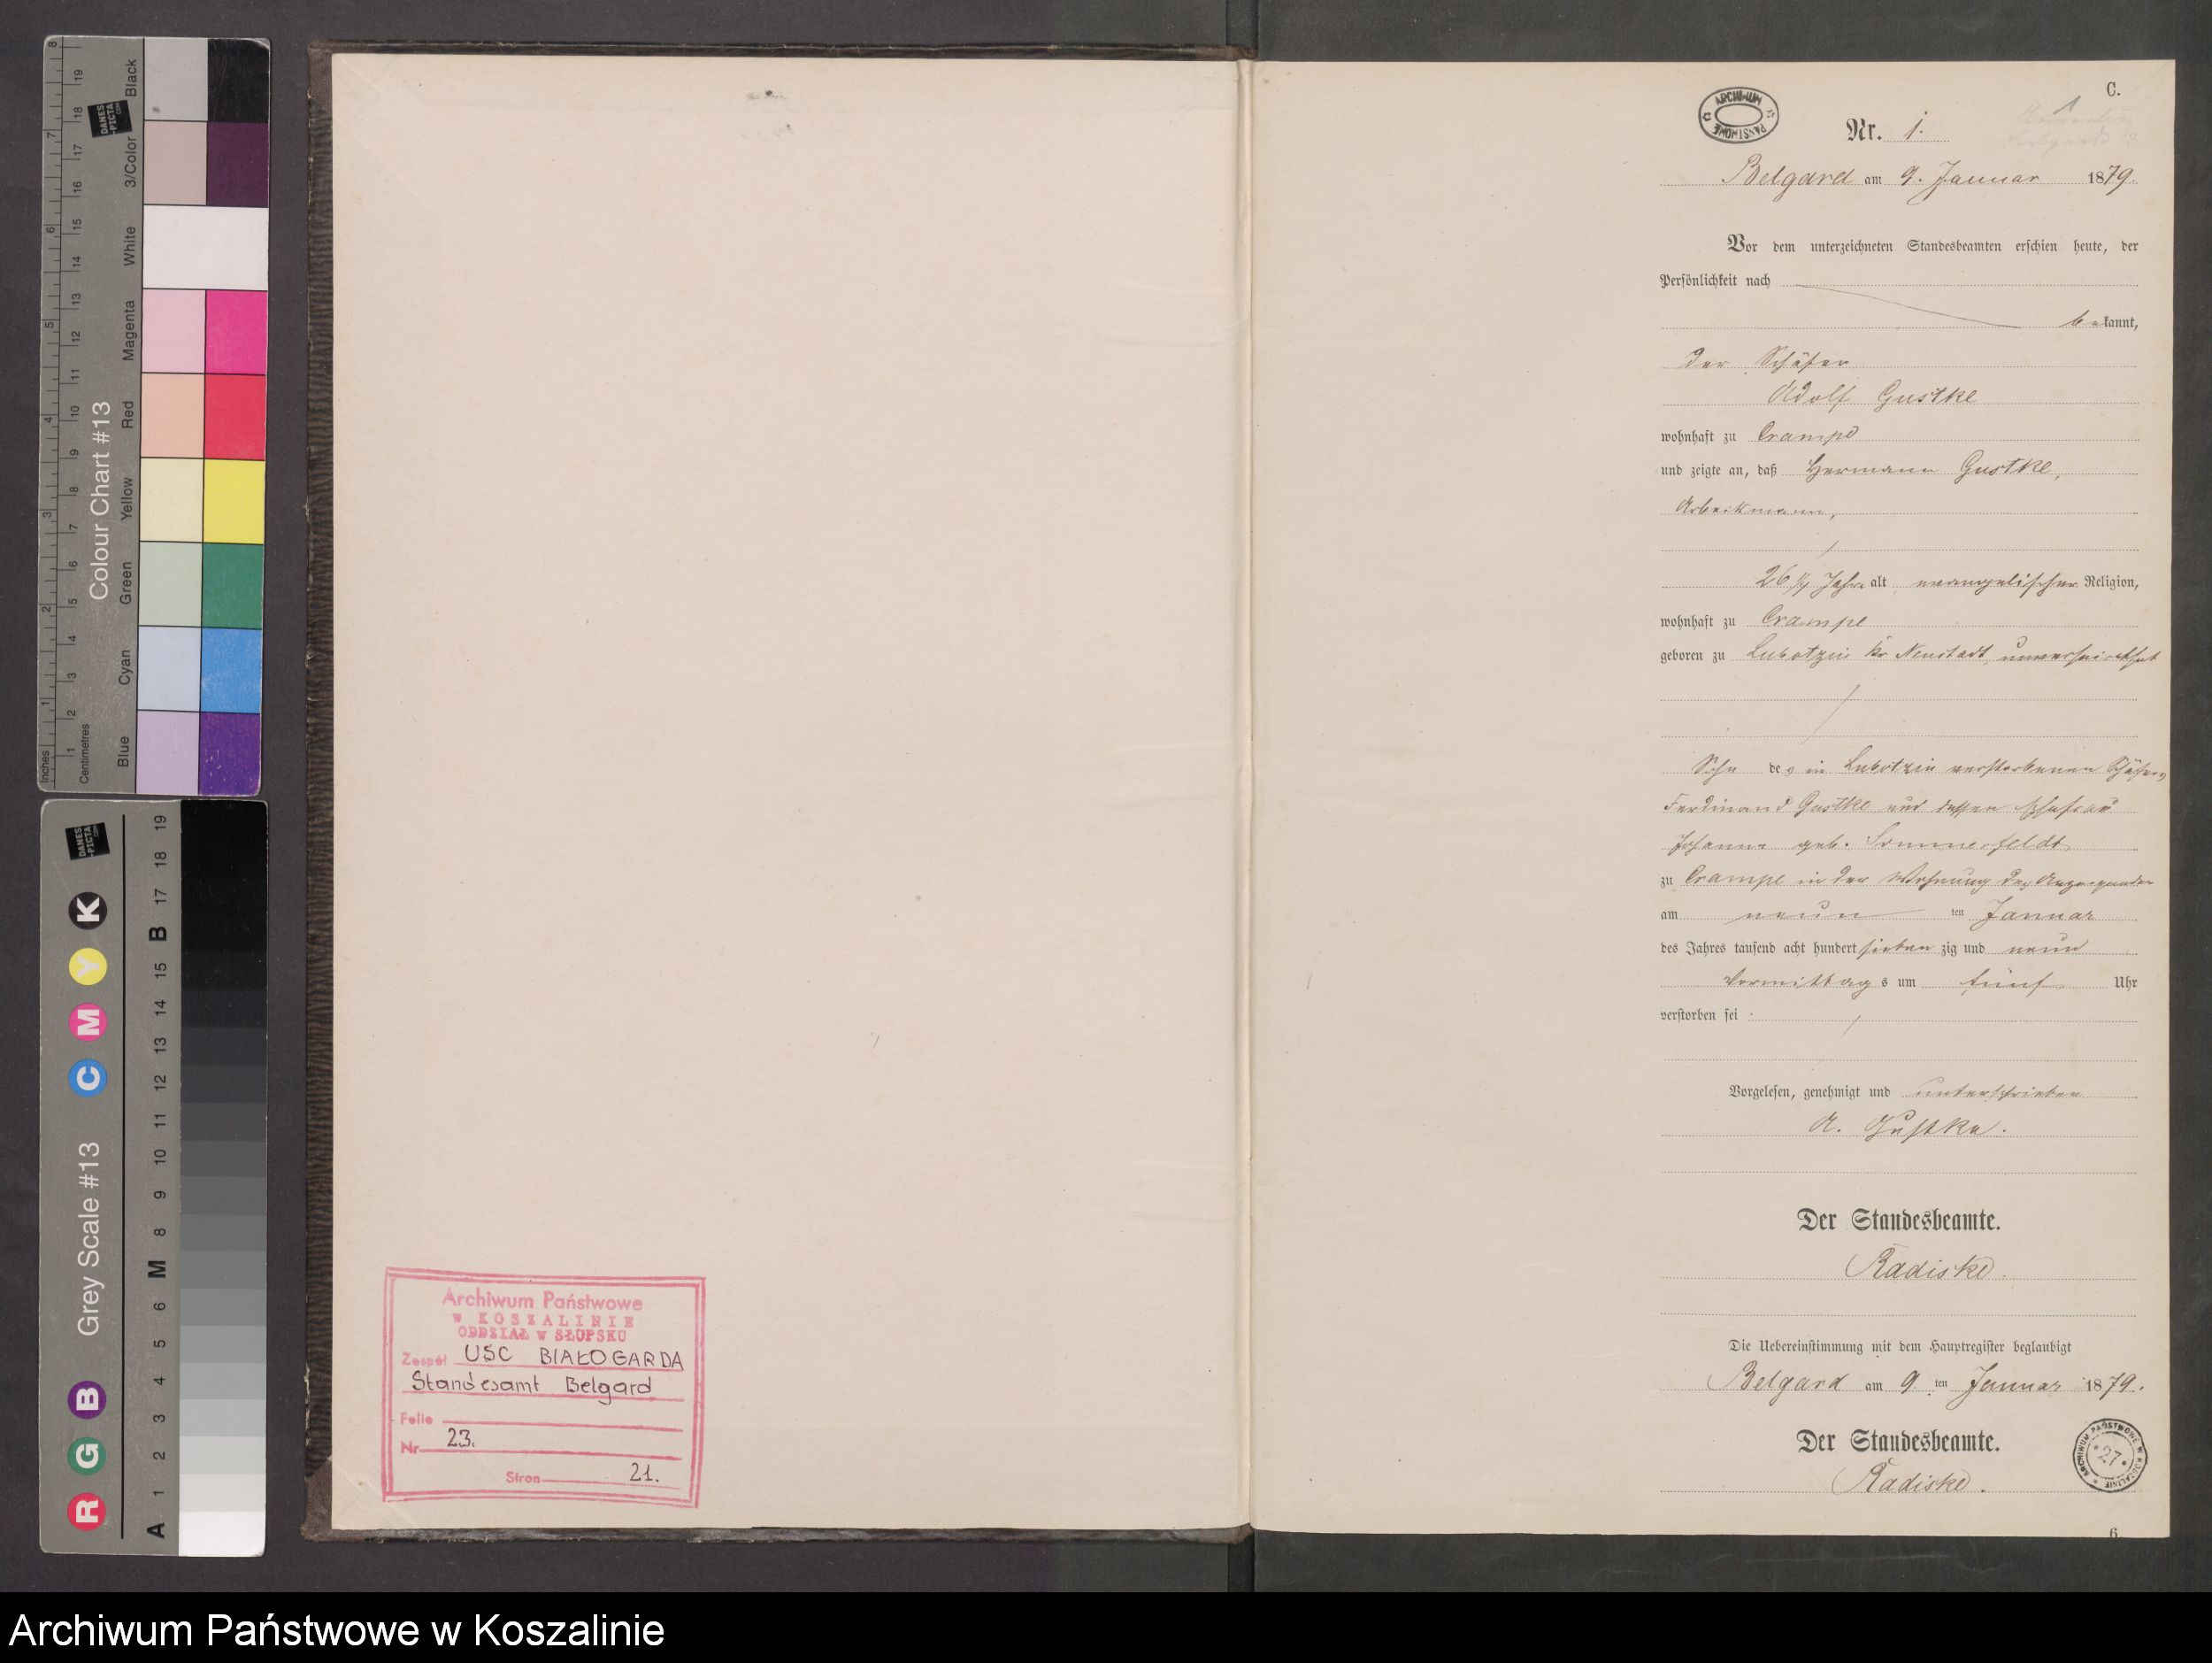 Colour Chart #13
Inches
Centimetres
Blue
Cyan
Green
Yellow
Red
Magenta
White
3/Color
Black
DANES
-PICTA
.COM
Grey Scale #13
R G B C M Y K
A 1 2 3 4 5 6 M 8 9 10 11 12 13 14 15 B 17 18 19
Archiwum Państwowe
w KOSZALINIE
ODDZIAŁ w SŁUPSKU
Zespół USC BIAŁOGARDA
Standesamt Belgard
Nr. 23.
Stron 21.
C.
1
ARCHIWUM PAŃSTWOWE
Nr. 1.
Belgard am 9. Januar 1879.
Vor dem unterzeichneten Standesbeamten erschien heute, der
Persönlichkeit nach
bekannt,
der Schäfer
Adolf Gustke
wohnhaft zu Crampe
und zeigte an, daß Hermann Gustke,
Arbeitsmann,
26 Jahre alt, evangelischer Religion,
wohnhaft zu Crampe
geboren zu Lubotzin Kr Neustadt, unverheirathet
Sohn des in Lubotzin verstorbenen Schäfers
Ferdinand Gustke und dessen Ehefrau
Johanne geb. Sommerfeldt
zu Crampe in der Wohnung des Anzeigenden
am neun ten Januar
des Jahres tausend acht hundert siebenzig und neun
Vormittags um fünf Uhr
verstorben sei
Vorgelesen, genehmigt und unterschrieben
A. Gustke.
Der Standesbeamte.
Radiske.
Die Uebereinstimmung mit dem Hauptregister beglaubigt
Belgard am 9 ten Januar 1879.
Der Standesbeamte.
Radiske.
ARCHIWUM PAŃSTWOWE W KOSZALINIE
* 27 *
6
Archiwum Państwowe w Koszalinie